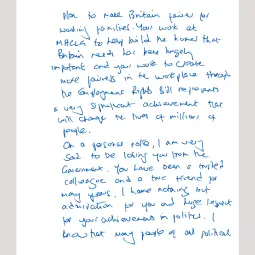 Nor to make Britain fairer for
working families. Your work at
MHCLG to help build the homes that
Britain needs has been hugely
important and your work to create
more fairness in the workplace through
the Employment Rights Bill represents
a very significant achievement that
will change the lives of millions of
people.
On a personal note, I am very
sad to be losing you from the
Government. You have been a trusted
colleague and a true friend for
many years. I have nothing but
admiration for you and huge respect
for your achievements in politics. I
know that many people of all political